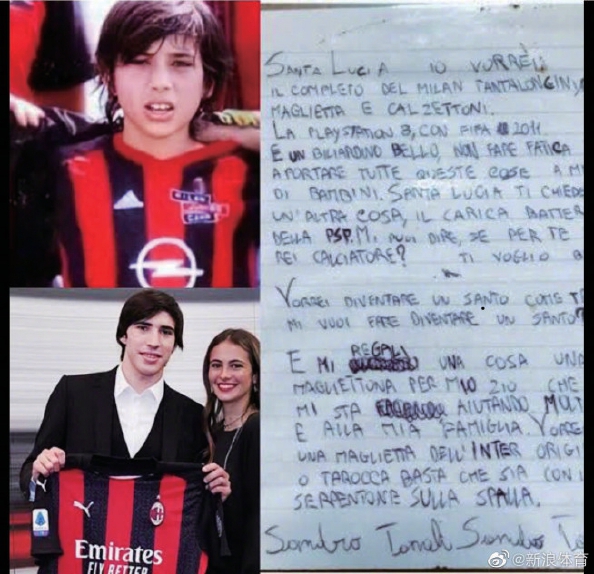 Emirates
FLY BETTER
SANTA LUCIA IO VORREI:
IL COMPLETO DEL MILAN PANTALONCINI,
MAGLIETTA E CALZETTONI.
LA PLAYSTATION 3, CON FIFA 2011
E UN BILIARDINO BELLO, NON FARE FATICA
A PORTARE TUTTE QUESTE COSE A MI
DI BAMBINI. SANTA LUCIA TI CHIEDO
UN'ALTRA COSA, IL CARICA BATTER
DELLA PSP. MI PUOI DIRE, SE PER TE
REI CALCIATORE? TI VOGLIO B
VORREI DIVENTARE UN SANTO COME T
MI VUOI FARE DIVENTARE UN SANTO?
E MI REGALI UNA COSA UNA
MAGLIETTONA PER MIO ZIO CHE
MI STA AIUTANDO MOLT
E ALLA MIA FAMIGLIA. VORRE
UNA MAGLIETTA DELL'INTER ORIGI
O TAROCCA BASTA CHE SIA CON I
SERPENTONE SULLA SPALLA.
Sandro Tonali Sandro To
@新浪体育